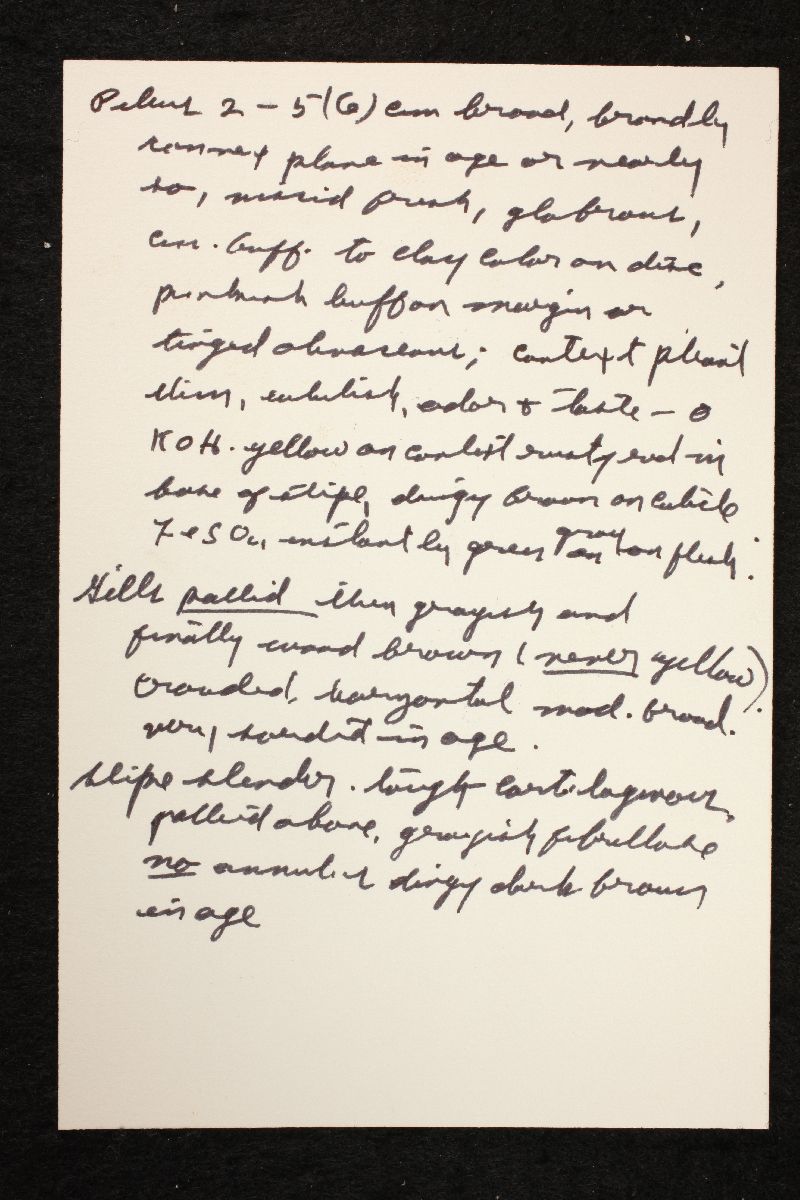 Pileus 2 – 5(6) cm broad, broadly
convex plane in age or nearly
so, viscid fresh, glabrous,
cin. buff. to clay color on disc,
pinkish buff on margin or
tinged olivaceous; context pliant
thin, whitish, odor & taste – 0
KOH. yellow on context rusty red in
base of stipe, dingy brown on cuticle
FeSO4, instantly green gray on on flesh.
Gills pallid then grayish and
finally wood brown (never yellow).
crowded, horizontal mod. broad.
in age.
Stipe slender. tough cartilaginous,
pallid above, grayish fibrillose
no annulus dingy dark brown
in age